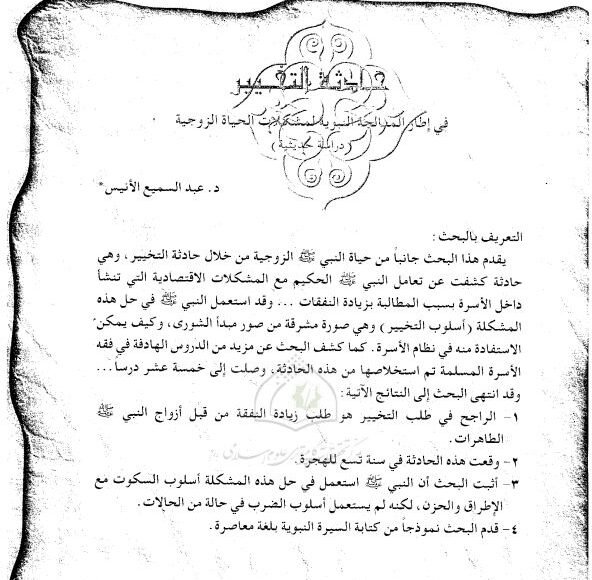 حادثة التخيير
في إطار المعالجة النبوية لمشكلات الحياة الزوجية
( دراسة حديثية )
د. عبد السميع الأنيس*
التعريف بالبحث :
يقدم هذا البحث جانباً من حياة النبي ﷺ الزوجية من خلال حادثة التخيير، وهي
حادثة كشفت عن تعامل النبي ﷺ الحكيم مع المشكلات الاقتصادية التي تنشأ
داخل الأسرة بسبب المطالبة بزيادة النفقات ... وقد استعمل النبي ﷺ في حل هذه
المشكلة ( أسلوب التخيير ) وهي صورة مشرقة من صور مبدأ الشورى، وكيف يمكن
الاستفادة منه في نظام الأسرة. كما كشف البحث عن مزيد من الدروس الهادفة في فقه
الأسرة المسلمة تم استخلاصها من هذه الحادثة، وصلت إلى خمسة عشر درساً...
وقد انتهى البحث إلى النتائج الآتية:
١- الراجح في طلب التخيير هو طلب زيادة النفقة من قبل أزواج النبي ﷺ
الطاهرات.
٢- وقعت هذه الحادثة في سنة تسع للهجرة.
٣- أثبت البحث أن النبي ﷺ استعمل في حل هذه المشكلة أسلوب السكوت مع
الإطراق والحزن، لكنه لم يستعمل أسلوب الضرب في حالة من الحالات.
٤- قدم البحث نموذجاً من كتابة السيرة النبوية بلغة معاصرة.